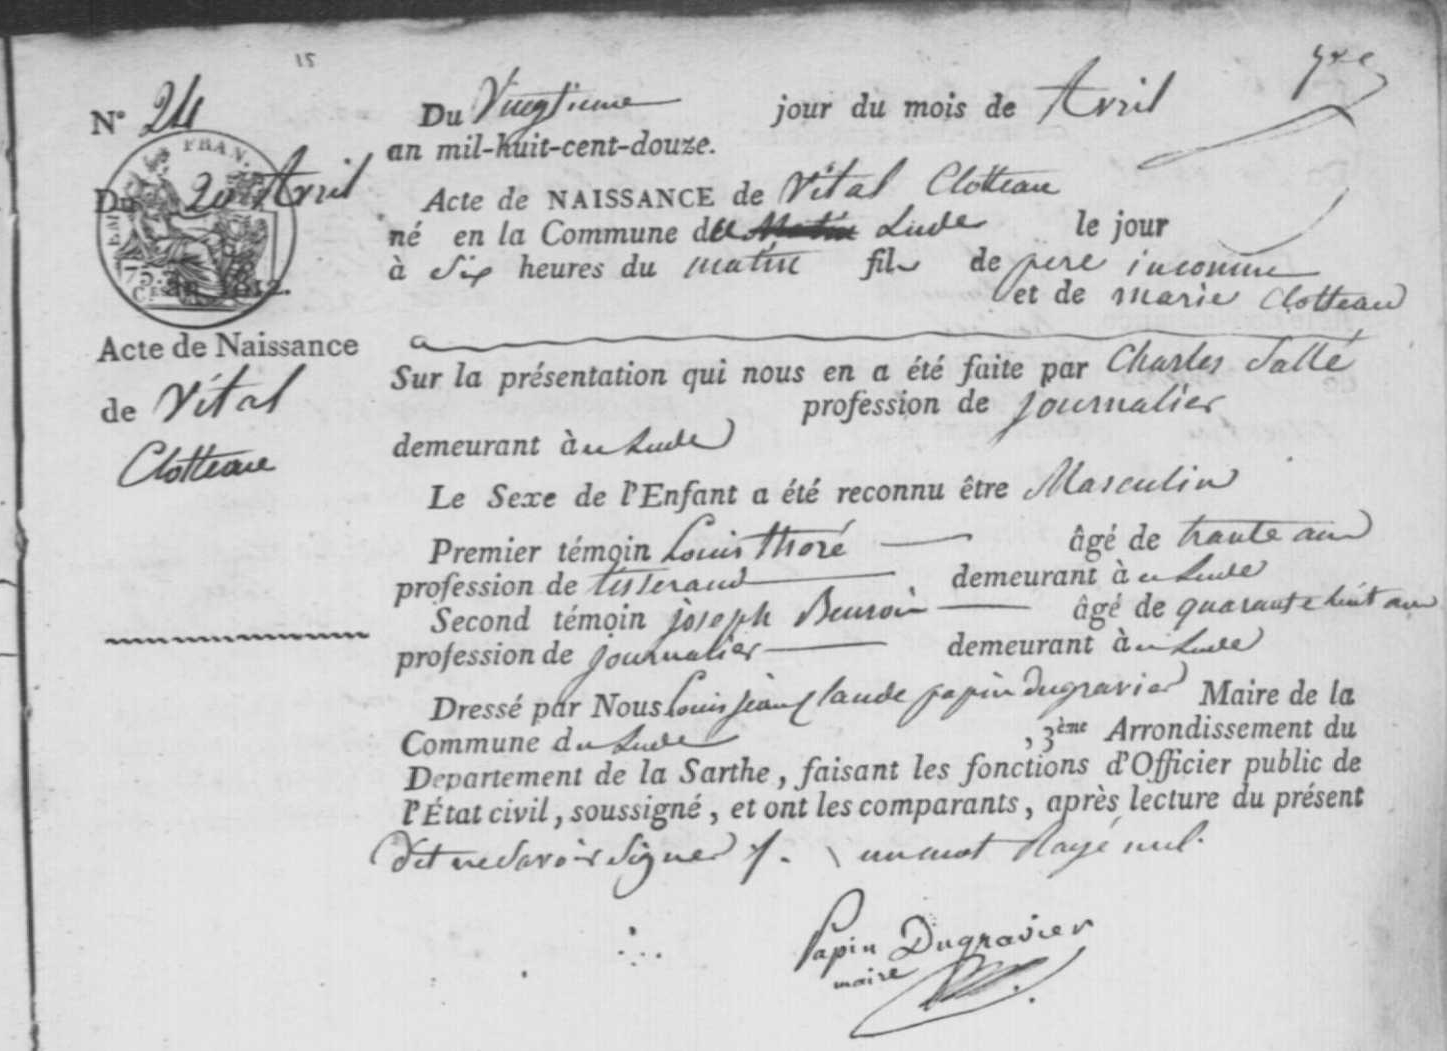 N° 24
Du 20 Avril
an 1812.
Acte de Naissance
de Vital
Clotteau
Du Vingtieme jour du mois de Avril
an mil-huit-cent-douze.
Acte de NAISSANCE de Vital Clotteau
né en la Commune du Lude le jour
à Six heures du matin fils de pere inconnu
et de marie Clotteau
Sur la présentation qui nous en a été faite par Charles Sallé
profession de journalier
demeurant à au Lude
Le Sexe de l'Enfant a été reconnu être Masculin
Premier témoin Louis thoré âgé de trante ans
profession de tisserand demeurant à au Lude
Second témoin joseph âgé de quarante huit ans
profession de journalier demeurant à au Lude
Dressé par Nous Louis jean Claude papin dugravier Maire de la
Commune du Lude , 3ème Arrondissement du
Departement de la Sarthe, faisant les fonctions d'Officier public de
l'État civil, soussigné, et ont les comparants, après lecture du présent
dit ne Savoir Signer /. un mot Rayé nul.
Papin Dugravier
maire